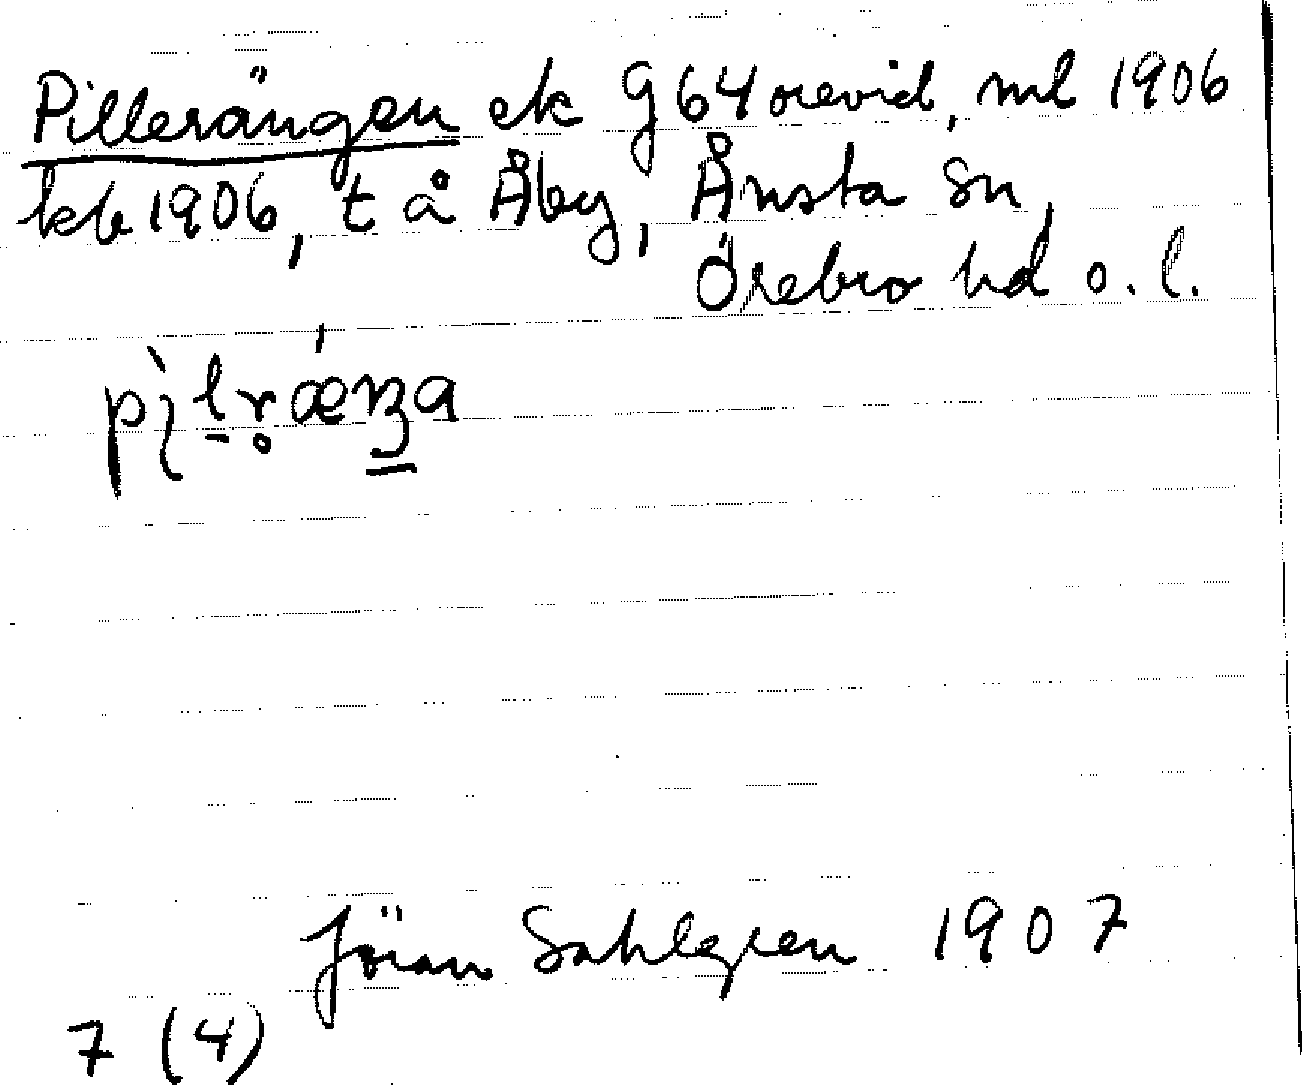 Pillerängen ek G64 orevid, ml 1906
kb 1906, t å Åby, Ånsta sn,
Örebro hd o. l.
Jöran Sahlgren 1907
7 (4)